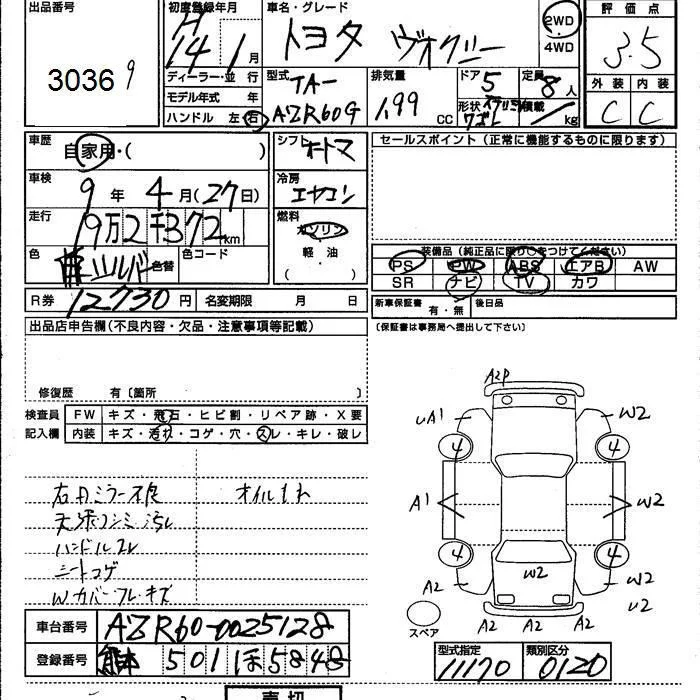 出品番号
30369
初度登録年月
H
14 1月
車名・グレード
トヨタ ヴォクシー
2WD
・
4WD
評価点
3.5
外装 内装
C C
ディーラー・並行
モデル年式 年
ハンドル 左・右
型式
TA-
AZR60G
排気量
1.99
CC
ドア
5
定員
8人
形状
積載
kg
車歴
自家用・( )
車検
9年 4月(27日)
走行
9万2千372km
色
シルバー
色替
色コード
シフト
オートマ
冷房
エヤコン
燃料
ガソリン
軽・油
・( )
R券
12730円
名変期限 月 日
セールスポイント(正常に機能するものに限ります)
装備品(純正品に限り○をつけてください)
PS PW ABS エアB AW
SR ナビ TV カワ
新車保証書
有・無
後日品
〔保証書は事務局へ提出して下さい〕
出品店申告欄(不良内容・欠品・注意事項等記載)
修復歴 有〔箇所 〕
検査員
記入欄
FW キズ・飛石・ヒビ割・リペア跡・X要
内装 キズ・汚れ・コゲ・穴・スレ・キレ・破レ
右Dミラー不良
オイルもれ
天張シミ汚れ
ハンドルスレ
シートコゲ
Wカバーフレキズ
A2P
UA1
W2
4
4
A1
W2
4
4
W2
A2
W2
U2
A2 A2 A2
スペア
車台番号
AZR60-0025128
登録番号
熊本 501 ほ 5848
型式指定
11170
類別区分
0120
売切